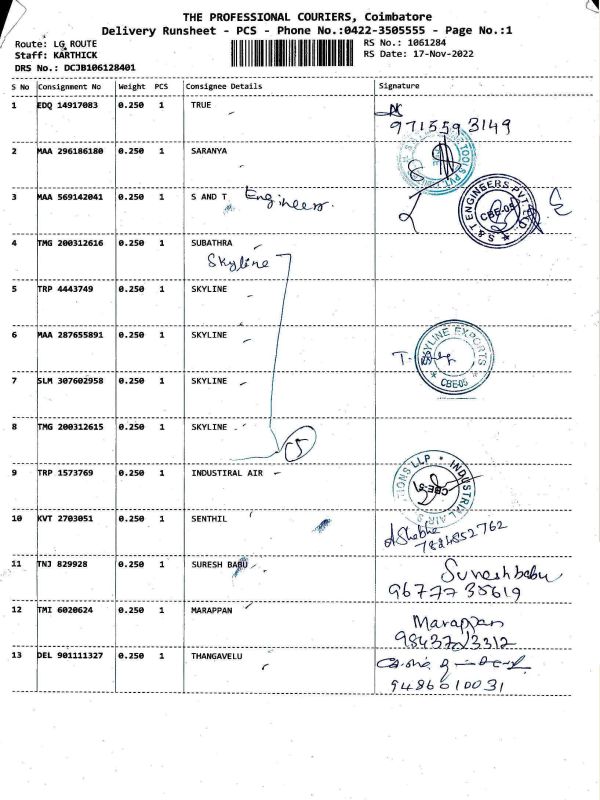 THE PROFESSIONAL COURIERS, Coimbatore
Delivery Runsheet - PCS - Phone No.:0422-3505555 - Page No.:1
Route: LG ROUTE
RS No.: 1061284
Staff: KARTHICK
RS Date: 17-Nov-2022
DRS No.: DCJB106128401
S No Consignment No Weight PCS Consignee Details Signature
1 EDQ 14917083 0.250 1 TRUE
9715593149
2 MAA 296186180 0.250 1 SARANYA
TOOLS PVT
3 MAA 569142041 0.250 1 S AND T Engineers.
S & T ENGINEERS PVT. LTD. CBE-05
4 TMG 200312616 0.250 1 SUBATHRA
Skyline
5 TRP 4443749 0.250 1 SKYLINE
6 MAA 287655891 0.250 1 SKYLINE
SKYLINE EXPORTS CBE-05
7 SLM 307602958 0.250 1 SKYLINE
8 TMG 200312615 0.250 1 SKYLINE
5
9 TRP 1573769 0.250 1 INDUSTIRAL AIR
INDUSTRIAL AIR S TIONS LLP
10 KVT 2703051 0.250 1 SENTHIL
7824852762
11 TNJ 829928 0.250 1 SURESH BABU
Sureshbabu
9677735619
12 TMI 6020624 0.250 1 MARAPPAN
Marappan
9843723312
13 DEL 901111327 0.250 1 THANGAVELU
9486010031